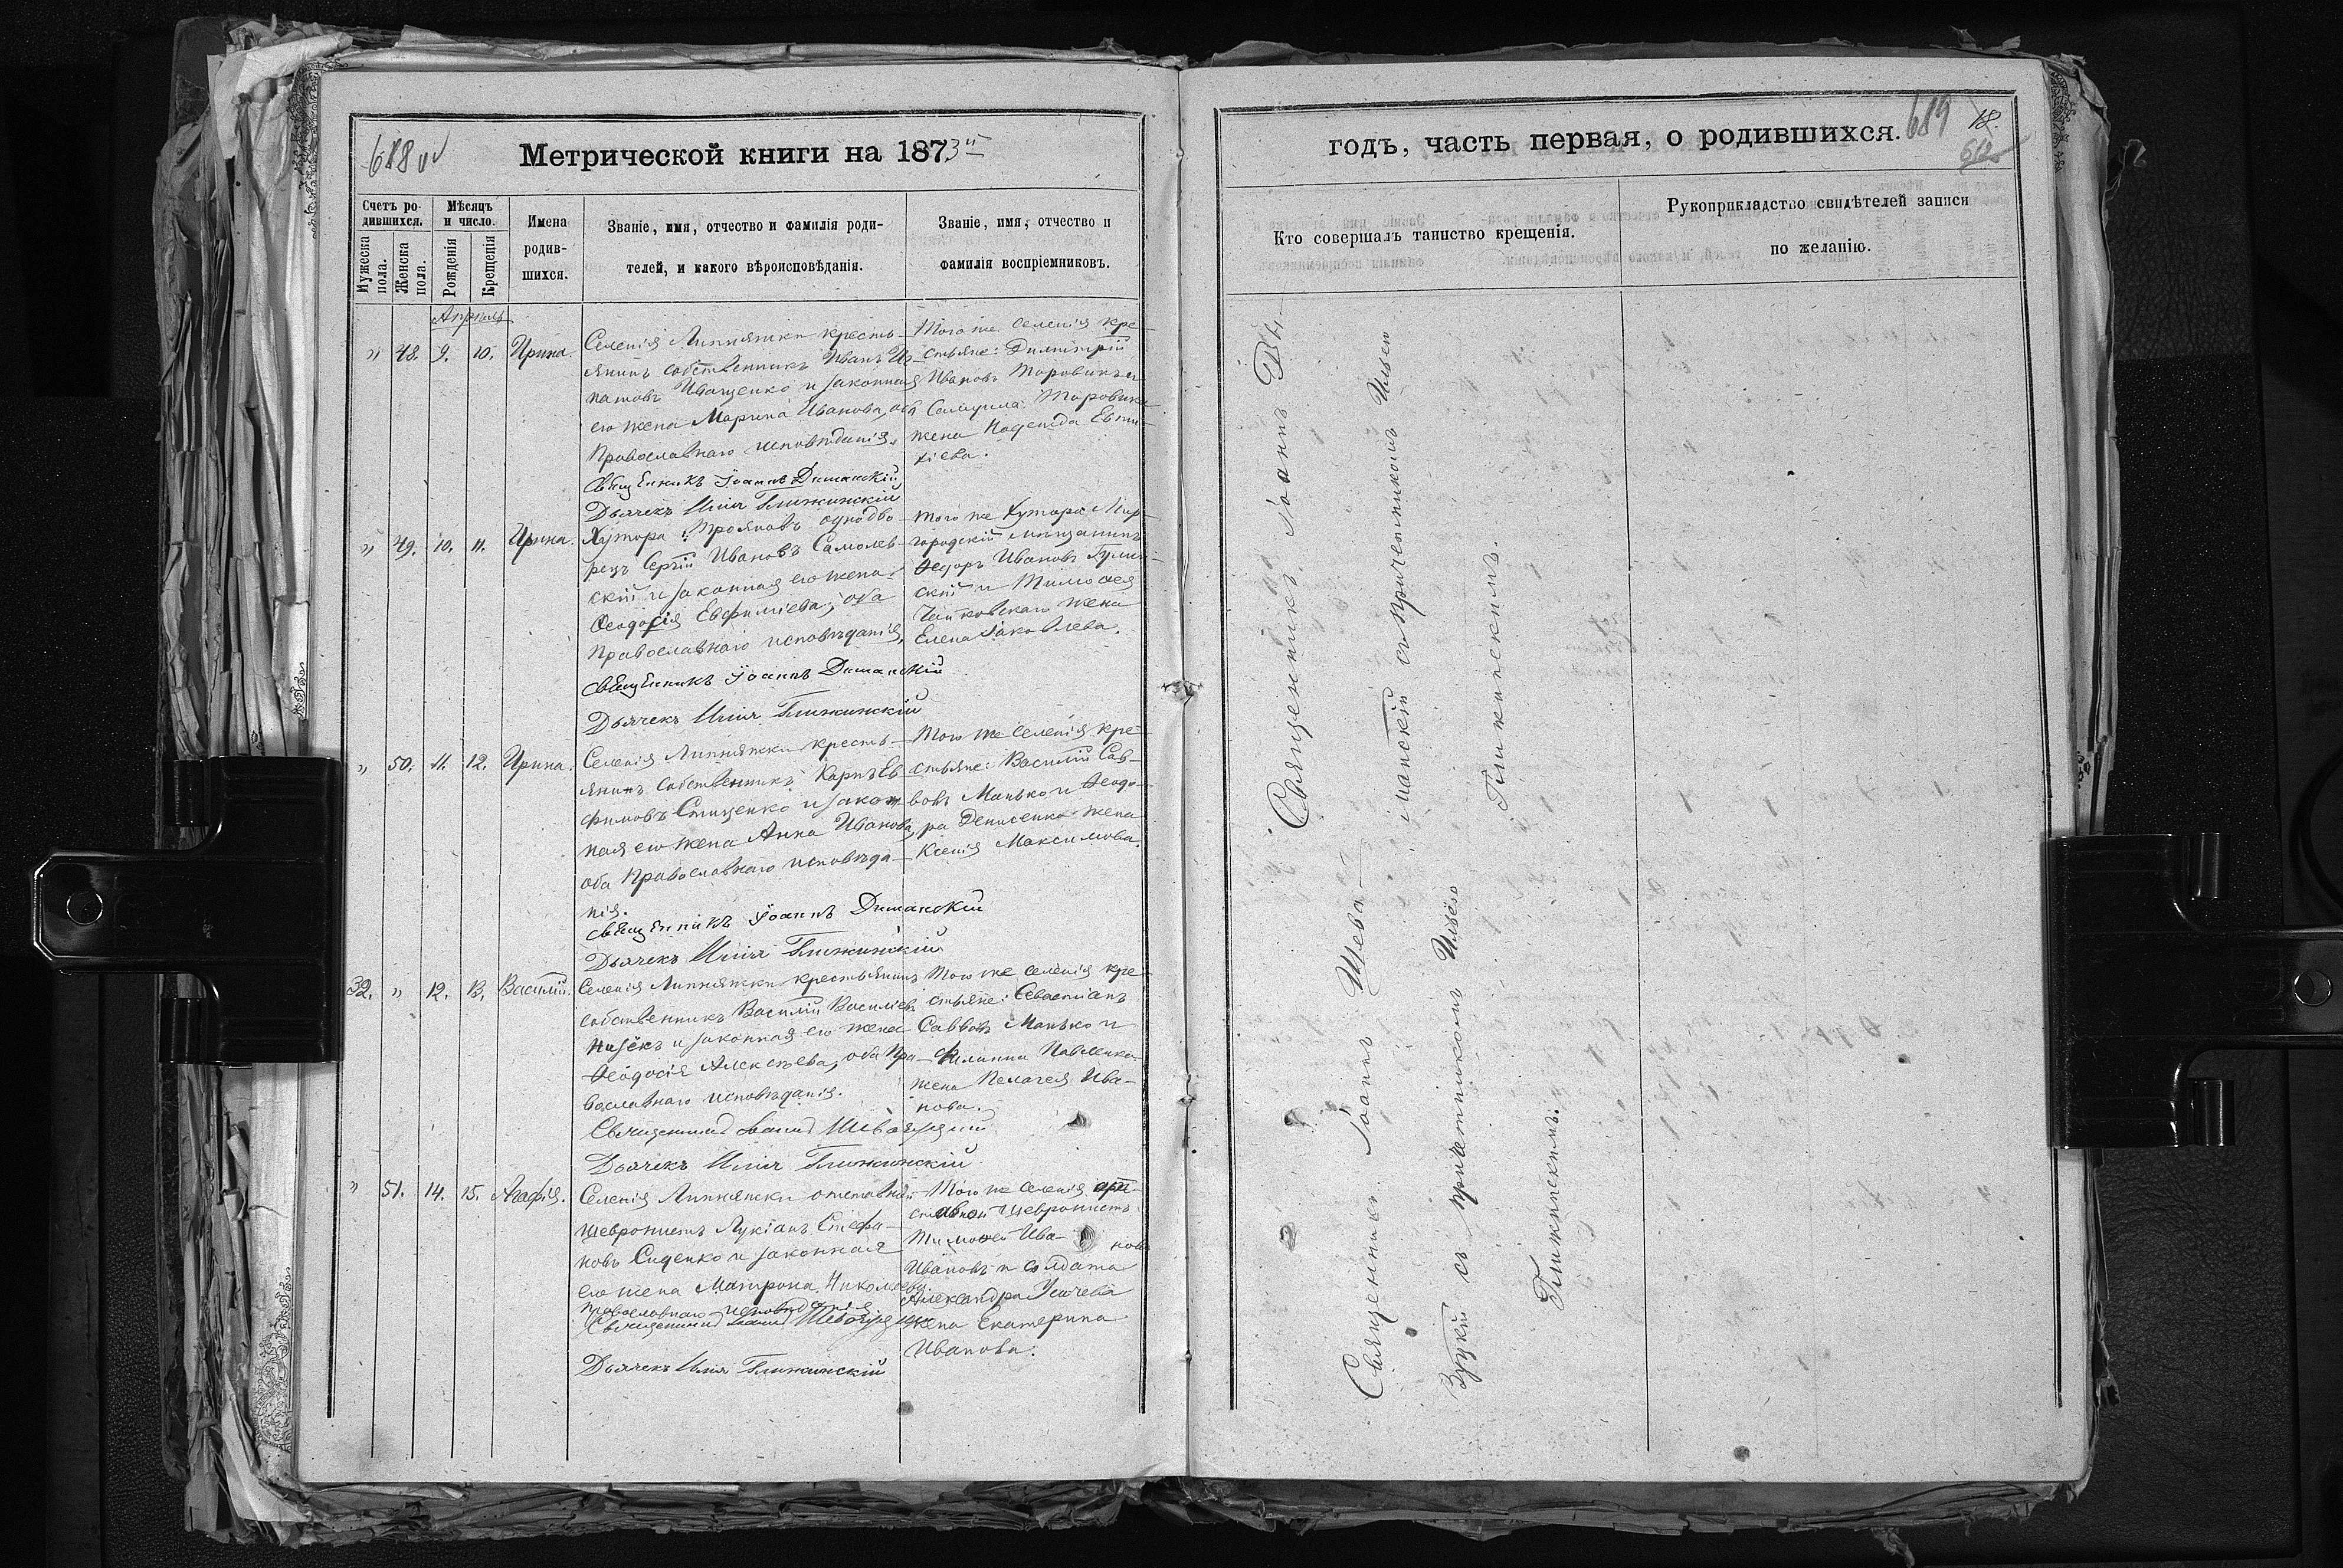 688
Метрической книги на 1873й
Счетъ ро-
дившихся.
Мѣсяцъ
и число.
Мужеска
пола.
Женска
пола.
Рожденія
Крещенія
Имена
родив-
шихся.
Званіе, имя, отчество и фамилія роди-
телей, и какого вѣроисповѣданія.
Званіе, имя, отчество и
фамилія воспріемниковъ.
Апрѣль
" 48. 9. 10. Ирина.
Селенія Липняжки кресть-
янинъ собственникъ Иванъ Иг-
натовъ Иващенко и законная
его жена Марина Иванова, оба
Православнаго исповѣданія.
Священникъ Іоаннъ Диманскій
Дьячекъ Илія Ближинскій
Того же селенія кре-
стьяне: Димитрій
Ивановъ Боровикъ и
жена Надежда Евти-
хіева.
" 49. 10. 11. Ирина.
Хутора Трояновъ однодво-
рецъ Сергій Ивановъ
скій и законная его жена
Феодосія Евфиміева, оба
Православнаго исповѣданія.
Священникъ Іоаннъ Диманскій
Дьячекъ Илія Ближинскій
Того же Хутора Мир-
городскій мѣщанинъ
Федоръ Ивановъ
скій и Тимофея
Чайковскаго жена
Елена Іаковлева.
" 50. 11. 12. Ирина.
Селенія Липняжки кресть-
янинъ собственникъ Карпъ Ев-
фимовъ Стищенко и закон-
ная его жена Анна Иванова,
оба Православнаго исповѣда-
нія.
Священникъ Іоаннъ Диманскій
Дьячекъ Илія Ближинскій
Того же селенія кре-
стьяне: Василій Сав-
вовъ Манько и Феодо-
ра Денисенко жена
Ксенія Максимова.
32. " 12. 13. Василій.
Селенія Липняжки крестьянинъ
собственникъ Василій Васильевъ
и законная его жена
Феодосія Алексѣева, оба Пра-
вославнаго исповѣданія.
Дьячекъ Илія Ближинскій
Того же селенія кре-
стьяне: Севастіанъ
Саввовъ Манько и
Филиппа Павленка
жена Пелагея Ива-
нова.
" 51. 14. 15. Агафія.
Селенія Липняжки отставной
шевронистъ Лукіанъ Стефа-
новъ Сиденко и законная
его жена Матрона Николаева
православнаго исповѣданія
Дьячекъ Илія Ближинскій
Того же селенія
шевронистъ
Тимофей Ива-
Ивановъ и солдата
Александра Усачева
жена Екатерина
Иванова.
годъ, часть первая, о родившихся.
689
18.
Кто совершалъ таинство крещенія.
Рукоприкладство свидѣтелей записи
по желанію.
Священникъ Іоаннъ Ди-
манскій съ Причетникомъ Ильею
Ближинскимъ.
Священникъ Іоаннъ Шева-
съ причетникомъ Ильею
Ближинскимъ.